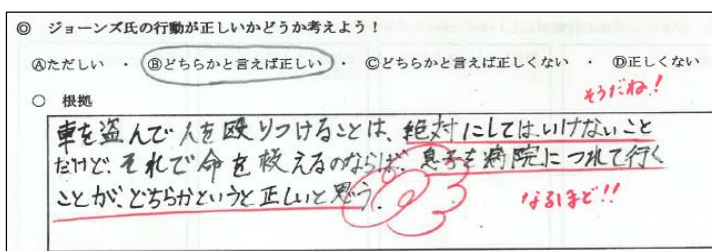 ◎ ジョーンズ氏の行動が正しいかどうか考えよう！
Ⓐただしい ・ Ⓑどちらかと言えば正しい ・ Ⓒどちらかと言えば正しくない ・ Ⓓ正しくない
○ 根拠
そうだね!
車を盗んで人を殴りつけることは、絶対にしてはいけないこと
だけど、それで命を救えるのならば、息子を病院につれて行く
ことが、どちらかというと正しいと思う。
なるほど!!